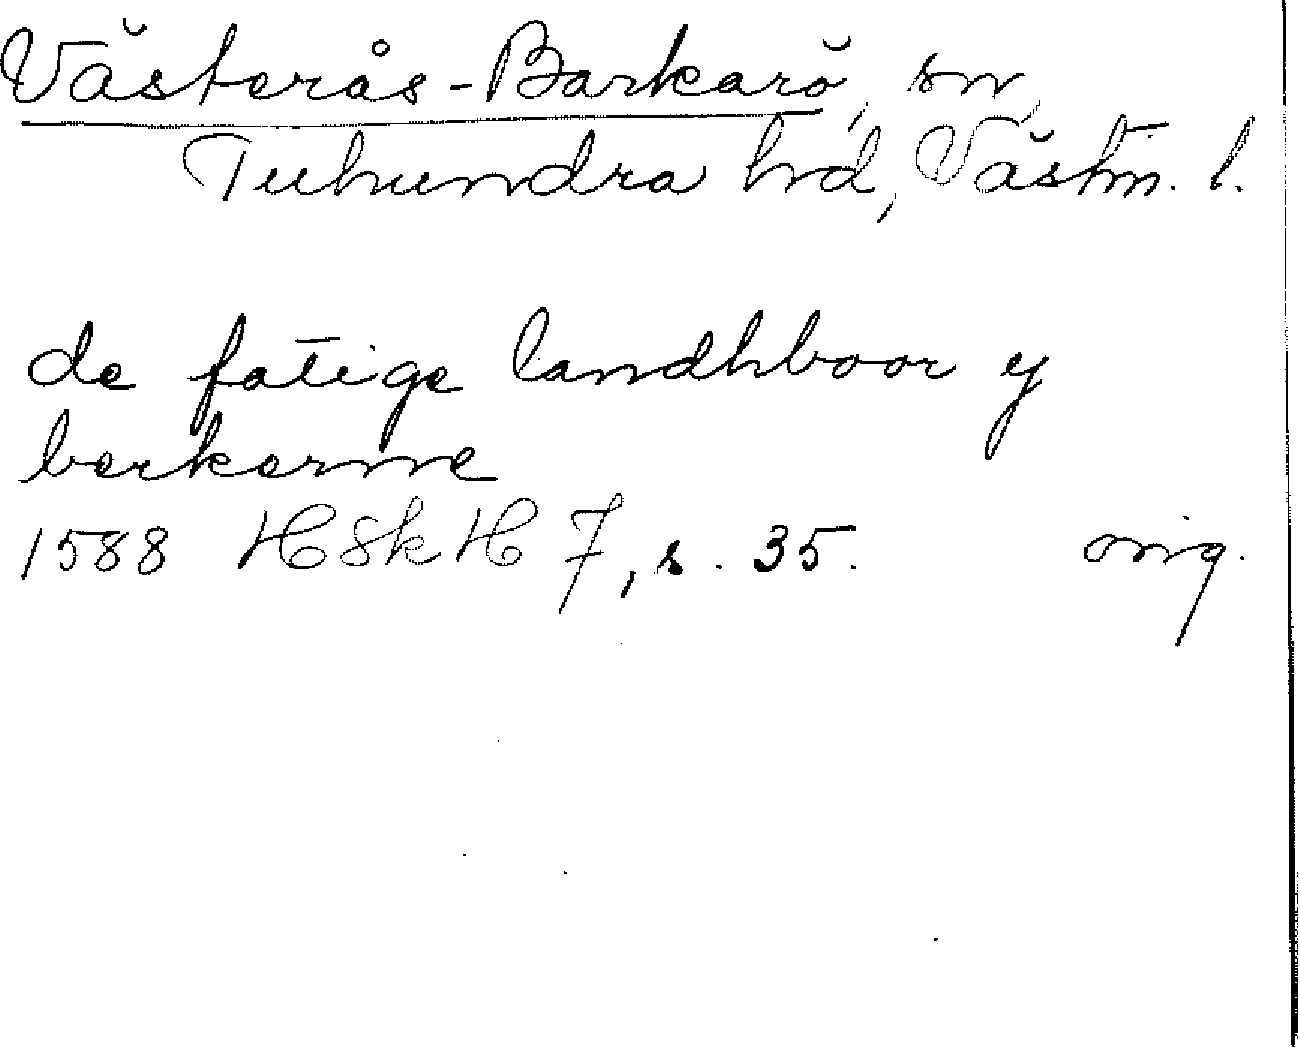 Västerås-Barkarö, sn,
Tuhundra hd, Västm. l.
de fatige landhboor y
berkerne
1588 HSkH 7, s. 35. orig.